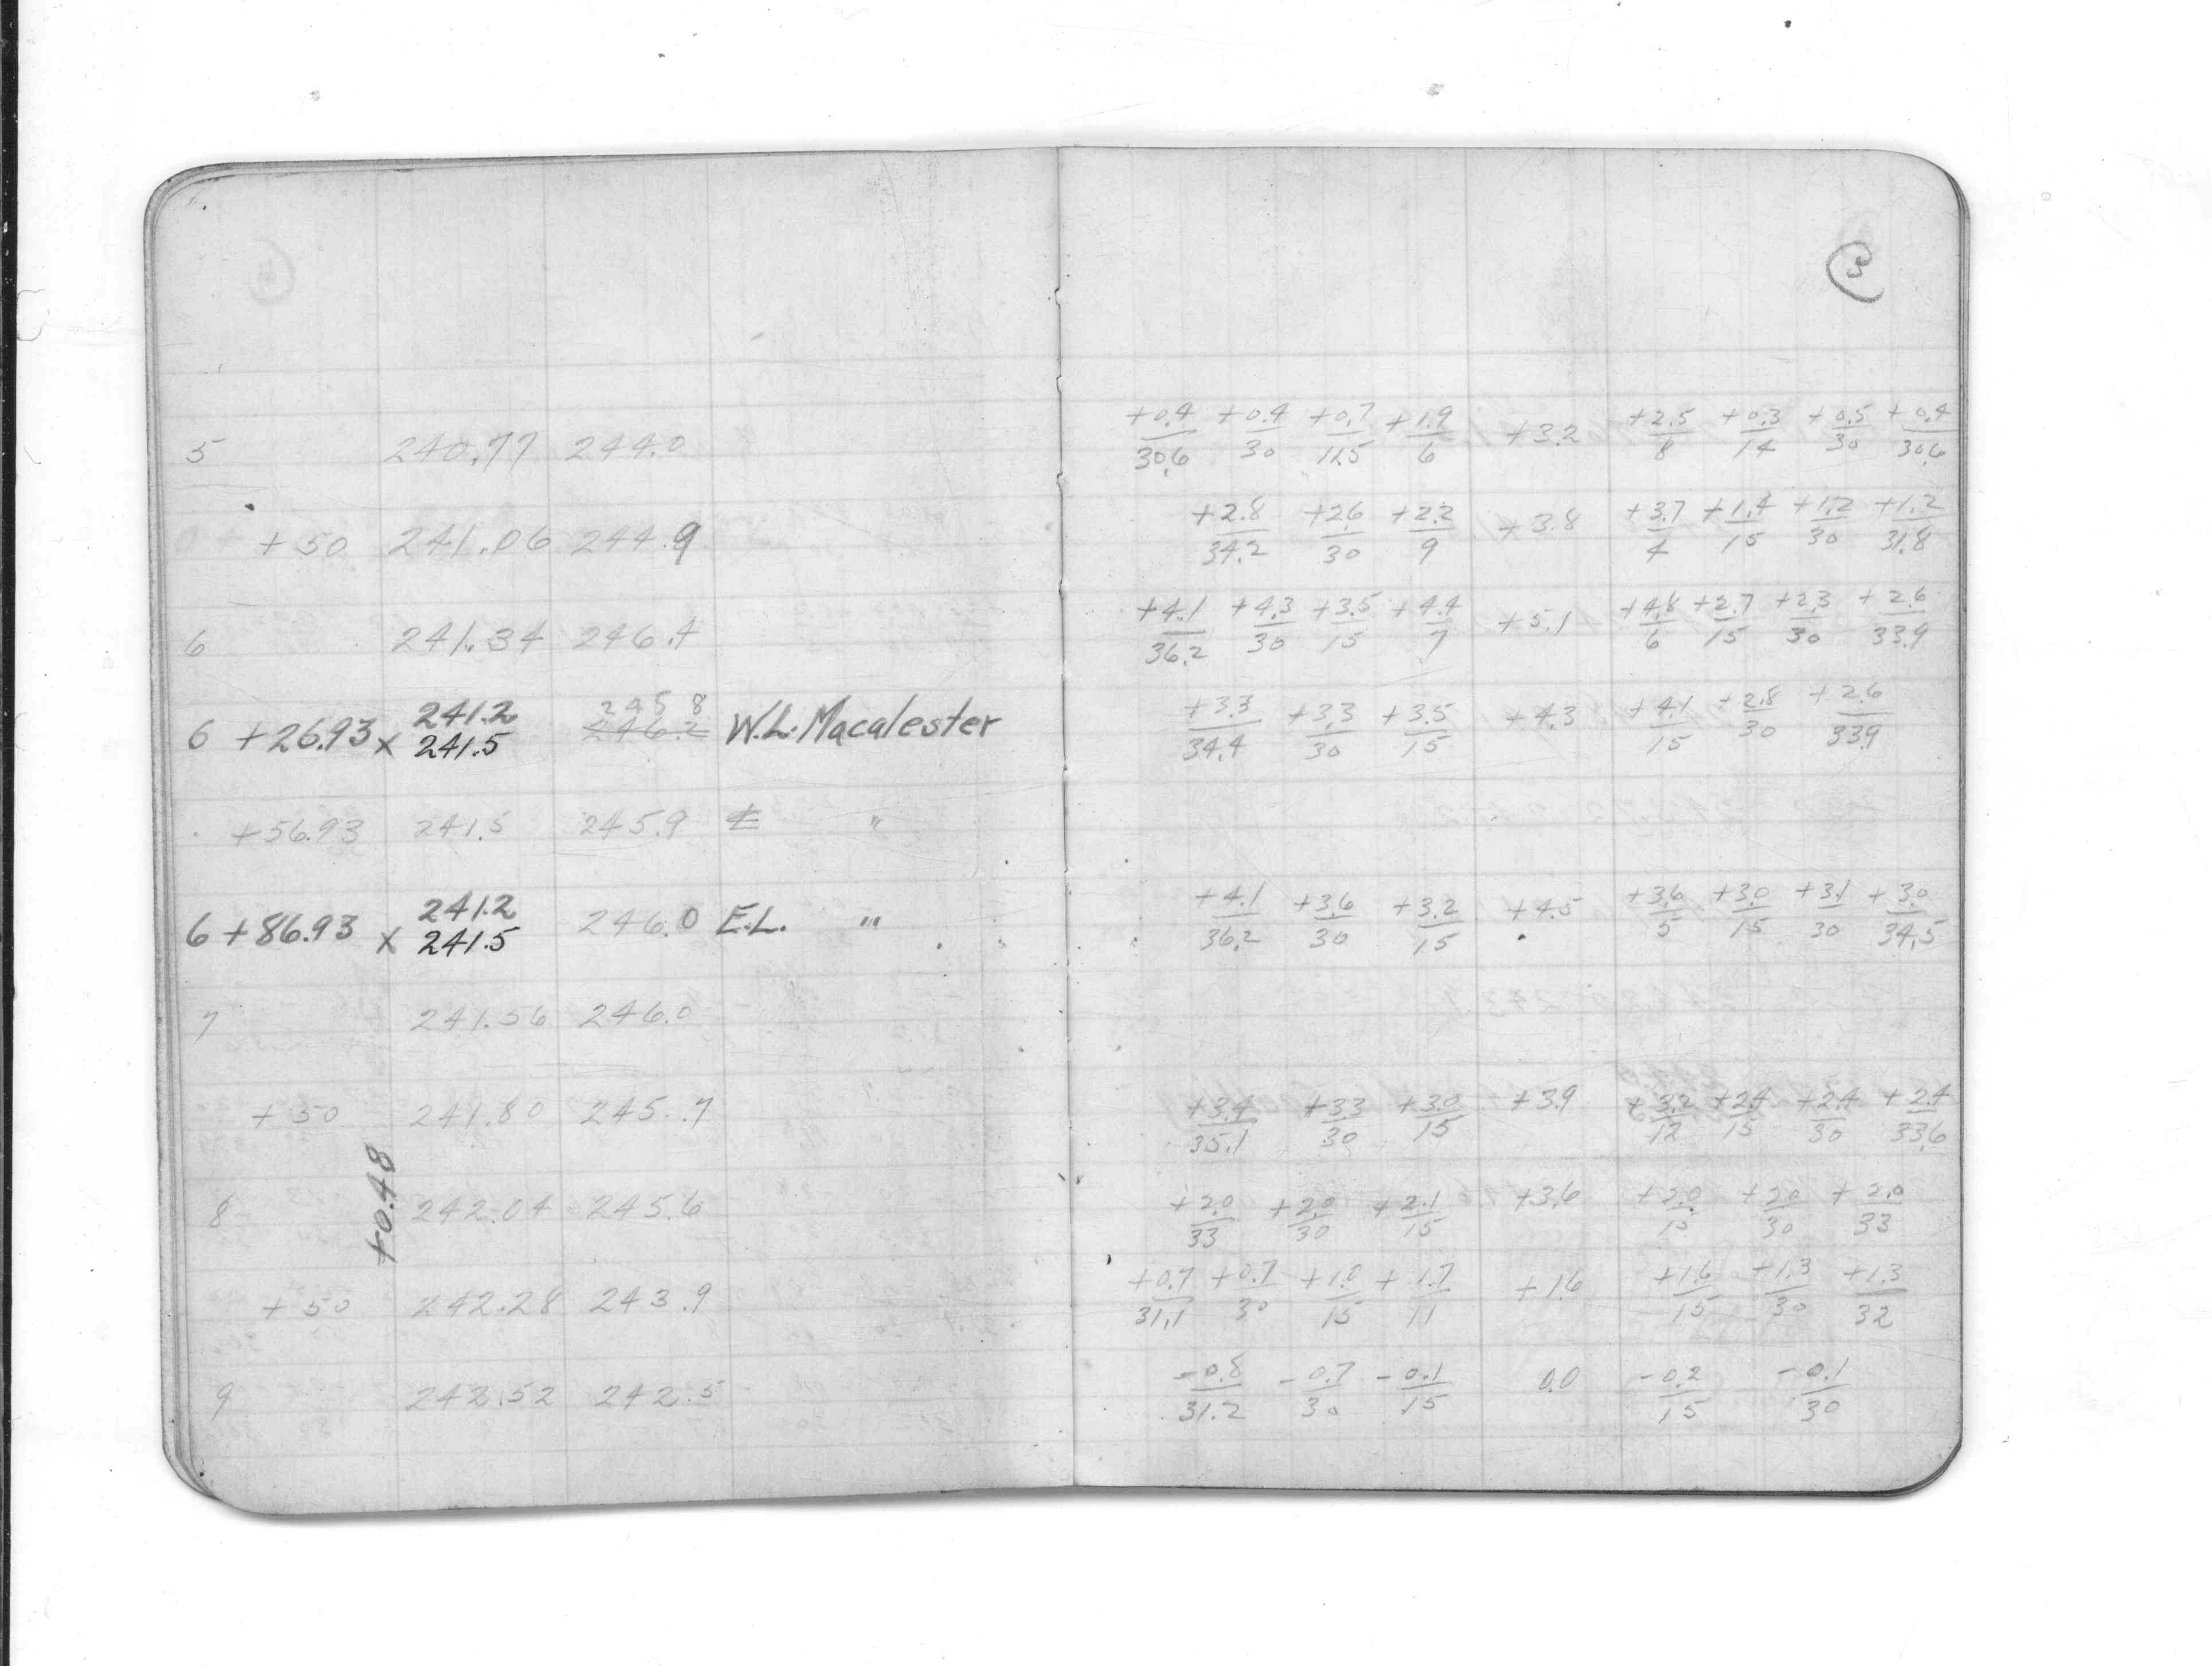 3
5 240.77 244.0 +0.4/30.6 +0.4/30 +0.7/11.5 +1.9/6 +3.2 +2.5/8 +0.3/14 +0.5/30 +0.4/30.6
+50 241.06 244.9 +2.8/34.2 +2.6/30 +2.2/9 +3.8 +3.7/4 +1.4/15 +1.2/30 +1.2/31.8
6 241.34 246.4 +4.1/36.2 +4.3/30 +3.5/15 +4.4/7 +5.1 +4.8/6 +2.7/15 +2.3/30 +2.6/33.9
241.2 245 8
6 +26.93 x 241.5 246.2 W.L. Macalester +3.3/34.4 +3.3/30 +3.5/15 +4.3 +4.1/15 +2.8/30 +2.6/33.9
+56.93 241.5 245.9 ℄ "
241.2
6 +86.93 x 241.5 246.0 E.L. " +4.1/36.2 +3.6/30 +3.2/15 +4.5 +3.6/5 +3.0/15 +3.1/30 +3.0/34.5
7 241.56 246.0
+50 241.80 245.7 +3.4/35.1 +3.3/30 +3.0/15 +3.9 +3.2/12 +2.4/15 +2.4/30 +2.4/33.6
+0.48
8 242.04 245.6 +2.0/33 +2.0/30 +2.1/15 +3.6 +2.0/15 +2.0/30 +2.0/33
+50 242.28 243.9 +0.7/31.1 +0.7/30 +1.0/15 +1.7/11 +1.6 +1.6/15 +1.3/30 +1.3/32
9 242.52 242.5 -0.8/31.2 -0.7/30 -0.1/15 0.0 -0.2/15 -0.1/30